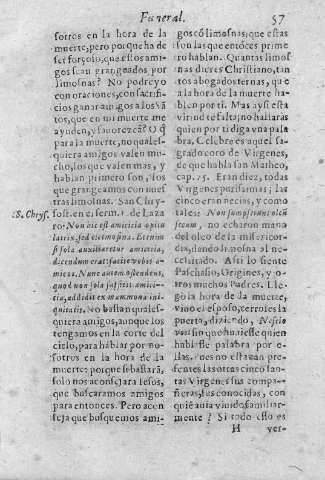 Funeral.
57
sotros en la hora de la
muerte, pero porque ha de
ser forçoso, que estos ami-
gos sean grangeados por
limosnas? No podre yo
con oraciones, con sacrifi-
cios ganar amigos a los Sã-
tos, que en mi muerte me
ayuden, y fauorezcã? O q̃
para la muerte, no quales-
quiera amigos valen mu-
cho, los que valen mas, y
hablan primero son, los
que grangeamos con nues
tras limosnas. San Chry-
S. Chrys.
sost. en el serm. 1. de Laza
ro: Non hic est amicitia opitu
latris, sed eleemosina. Etenim
si sola auxiliaretur amicitia,
dicendum erat: facite vobis a-
micos. Nunc autem ostendens,
quod non sola sufficit amici-
tia, addidit ex mammona ini-
quitatis. No bastan quales-
quiera amigos, aunque los
tengamos en la corte del
cielo, para hablar por no-
sotros en la hora de la
muerte: porque si bastarã,
solo nos aconsejara Iesus,
que buscaramos amigos
para entonces. Pero acon
seja que busquemos ami-
gos cõ limosnas, que estas
son las que entõces prime
ro hablan. Quantas limos
nas dieres Christiano, tan
tos abogados ternas, que
a la hora de la muerte ha-
blen por ti. Mas ay si esta
virtud te falta; no hallaràs
quien por ti diga vna pala
bra. Celebre es aquel sa-
grado coro de Virgenes,
de que habla san Matheo,
cap. 25. Eran diez, todas
Virgenes purissimas; las
cinco eran necias, y como
tales: Non sumpserunt oleũ
secum, no echaron mano
del oleo de la misericor-
dia, dieron limosna al ne-
cessitado. Assi lo siente
Paschasio, Origines, y o-
tros muchos Padres. Lle-
gò la hora de la muerte,
vino el esposo, cerroles la
puerta, diziendo, Nescio
vos sin que huuiesse quien
hablasse palabra por e-
llas. Pues no estavan pre-
sentes las otras cinco san-
tas Virgenes sus compa-
ñeras, sus conocidas, con
quiẽ auia viuido familiar-
mente? Si todo esto es
H
ver-